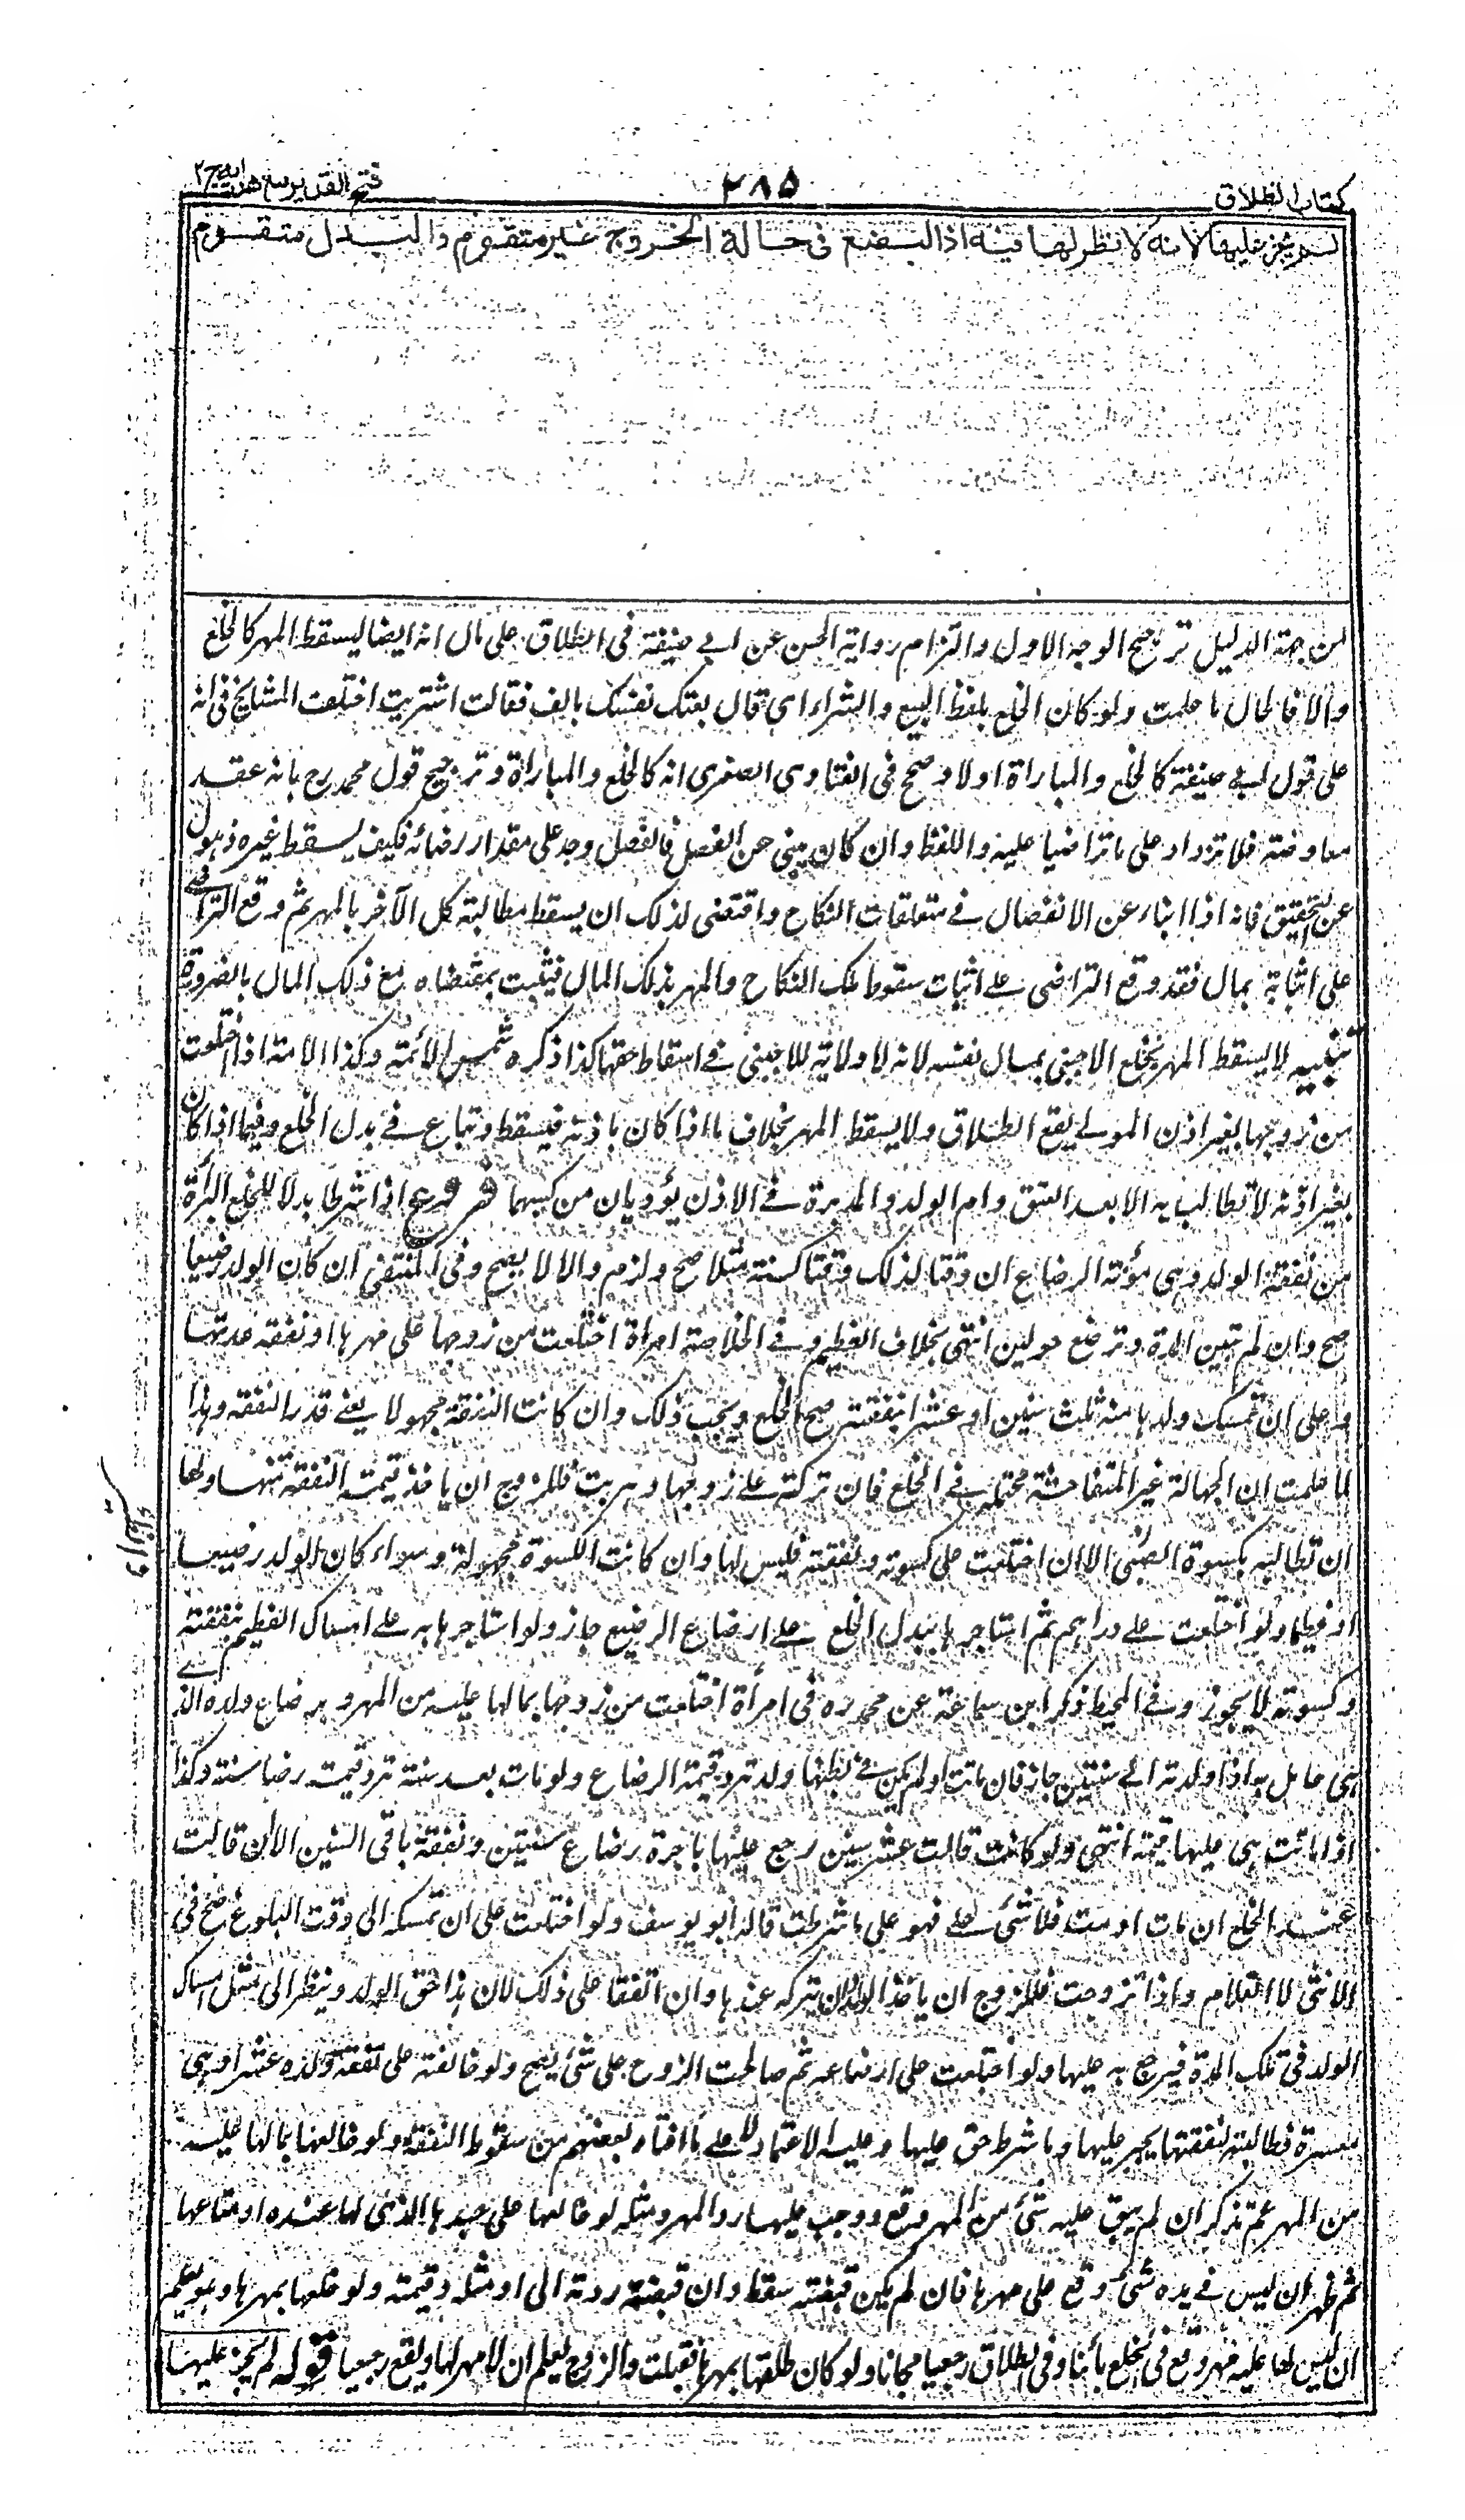 كتاب الطلاق
٢٨٥
فتح القدير مع هدايه ج٢
لم يجز عليها لانه لا نظر لها فيه اذ البضع فى حالة الخروج غير متقوم والبدل متقوم
من جهة الدليل ترجيح الوجه الاول والتزام رواية الحسن عن ابي حنيفة فى الطلاق على مال انه ايضا ليسقط المهر كالخلع
والا فالحال ما علمت ولو كان الخلع بلفظ البيع والشراء اى قال بعتك نفسك بالف فقالت اشتريت اختلف المشايخ فى انه
على قول ابي حنيفة كالخلع والمباراة اولا وصحح فى الفتاوى الصغرى انه كالخلع والمباراة وترجيح قول محمد رح بانه عقد
معاوضة فلا تزداد على ما تراضيا عليه واللفظ وان كان يبنى عن الفصل فالفصل وجد على مقدار رضائه فكيف يسقط غيره ذهول
عن التحقيق فانه اذا انباء عن الانفصال فے متعلقات النكاح واقتضى لذلك ان يسقط مطالبة كل الآخر بالمهر ثم وقع التراضے
على اثباته بمال فقد وقع التراضى علے اثبات سقوط ملك النكاح والمهر بذلك المال فيثبت بمقتضاه مع ذلك المال بالضرورة
تنبيه لا يسقط المهر بخلع الاجنبى بمال نفسه لانه لا ولاية للاجنبى فے اسقاط حقها كذا ذكره شمس الائمة وكذا الامة اذا اختلعت
من زوجها بغير اذن المولے يقع الطلاق ولا يسقط المهر بخلاف ما اذا كان باذنه فيسقط وتباع فے بدل الخلع وفيما اذا كان
بغير اذنه لا تطالب به الا بعد العتق وام الولد والمدبرة فے الاذن يؤديان من كسبهما فروع اذا شرطا بدلا للخلع البرأة
من نفقة الولد وهى مؤنة الرضاع ان وقتا لذلك وقتا كسنة مثلا صح ولزم والا لا يصح وفى المنتقى ان كان الولد رضيعا
صح وان لم تبين المدة وترضع حولين انتهى بخلاف الفطيم وفے الخلاصة امراة اختلعت من زوجها على مهرها ونفقه عدتها
وعلى ان تمسك ولدها منه ثلث سنين او عشرا بنفقته صح الخلع ويجب ذلك وان كانت النفقة مجهولا يعنے قدر النفقه وهذا
لما علمت ان الجهالة غير المتفاحشة محتملة فے الخلع فان تركته علے زوجها وهربت فللزوج ان ياخذ قيمة النفقة منها ولها
ان تطالبه بكسوة الصبى الا ان اختلعت على كسوته ونفقته فليس لها وان كانت الكسوة مجهولة وسواء كان الولد رضيعا
او فطيما ولو اختلعت علے دراهم ثم استاجرها ببدل الخلع علے ارضاع الرضيع جاز ولو استاجرها به علے امساك الفطيم بنفقته
وكسوته لا يجوز وفے المحيط ذكر ابن سماعة عن محمد رہ فى امرأة اختلعت من زوجها بمالها عليه من المهر وبرضاع ولده الذے
هى حامل به اذا ولدته الے سنتين جاز فان مات او لم يكن فے بطنها ولد ترد قيمة الرضاع ولو مات بعد سنة ترد قيمة رضا سنته وكذا
اذا ماتت هى عليها قيمة انتهى ولو كانت قالت عشر سنين رجع عليها باجرة رضاع سنتين ونفقة باقى السنين الا ان قالت
عند الخلع ان مات او مت فلا شئ علے فهو على ما شرطت قاله ابو يوسف ولو اختلعت على ان تمسكه الى وقت البلوغ صح فى
الانثى لا الغلام واذا تزوجت فللزوج ان ياخذ الولد ان يتركه عندها وان اتفقا على ذلك لان هذا حق الولد وينظر الى مثل امساك
الولد فى تلك المدة فيرجع به عليها ولو اختلعت على ارضاعه ثم صالحت الزوج على شئ يصح ولو خالعته على نفقة ولده عشرا وهى
معسرة فطالبته بنفقتها يجبر عليها وما شرط حق عليها وعليه الاعتماد لا علے ما افتاء بعضهم من سقوط النفقة ولو خالعها بمالها عليه
من المهر ثم تذكر ان لم يبق عليه شئ من المهر وقع ووجب عليها رد المهر ومثله لو خالعها على عبدها الذى لها عنده او متاعها
ثم ظهر ان ليس فے يده شئ وقع على مهرها فان لم يكن قبضته سقط وان قبضته ردته الى او مثله وقيمته ولو خلعها بمهرها وهو يعلم
ان ليس لها عليه مهر وقع فى الخلع بائنا وفى الطلاق رجعيا مجانا ولو كان طلقها بمهرها فقبلت والزوج يعلم ان لا مهر لها ويقع رجعيا قوله لم يجز عليها